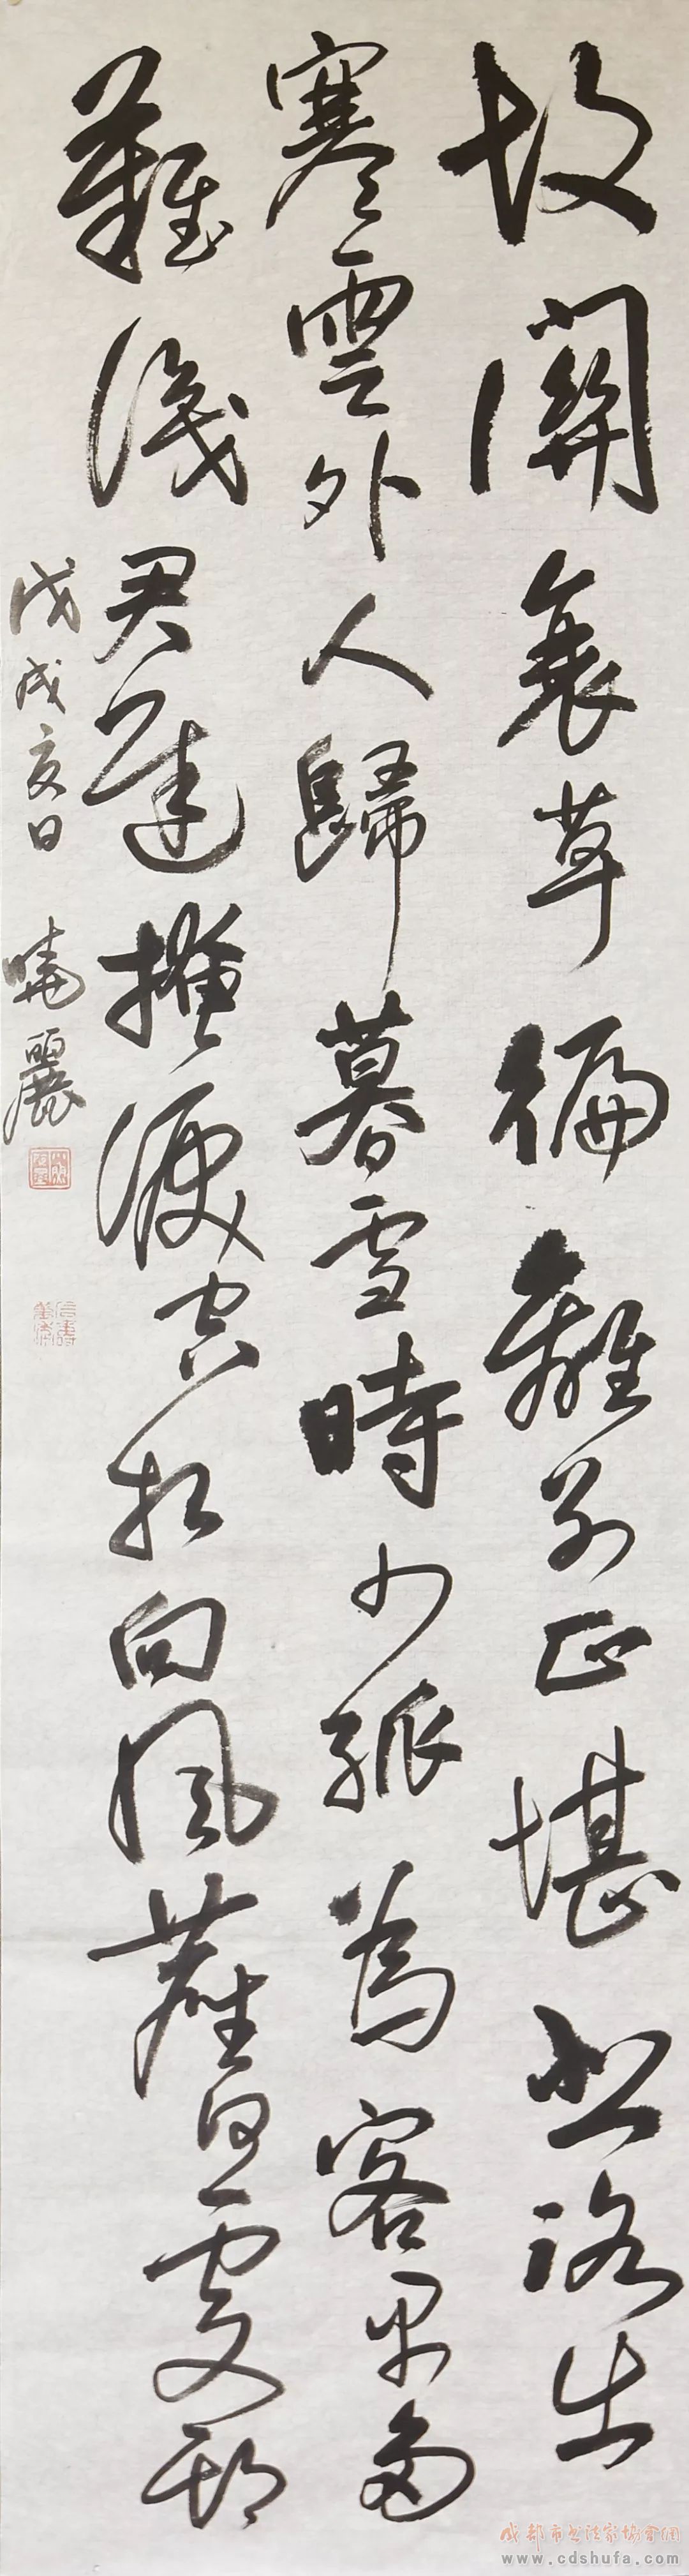 故關衰草徧離別正堪悲路出
寒雲外人歸暮雪時少孤為客早多
難識君遲掩淚空相向風塵何處期
戊戌夏日 曉麗
成都市书法家协会网
www.cdshufa.com